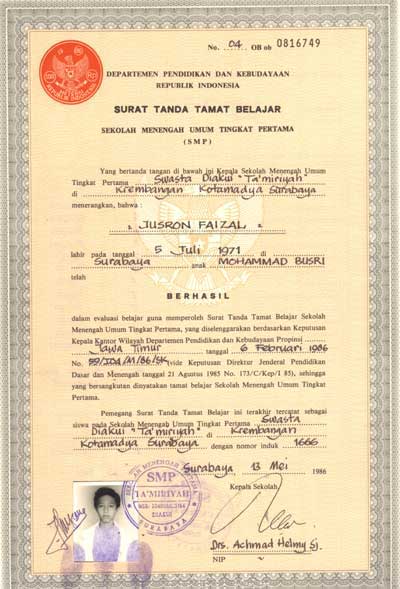 No. 04 OB ob 0816749
DEPARTEMEN PENDIDIKAN DAN KEBUDAYAAN
REPUBLIK INDONESIA
SURAT TANDA TAMAT BELAJAR
SEKOLAH MENENGAH UMUM TINGKAT PERTAMA
(SMP)
Yang bertanda tangan di bawah ini Kepala Sekolah Menengah Umum
Tingkat Pertama Swasta Diakui "Ta'miriyah"
di Krembangan Kotamadya Surabaya
menerangkan, bahwa :
JUSRON FAIZAL
lahir pada tanggal 5 Juli 1971 di
Surabaya anak MOHAMMAD BUSRI
telah
BERHASIL
dalam evaluasi belajar guna memperoleh Surat Tanda Tamat Belajar Sekolah
Menengah Umum Tingkat Pertama, yang diselenggarakan berdasarkan Keputusan
Kepala Kantor Wilayah Departemen Pendidikan dan Kebudayaan Propinsi
Jawa Timur tanggal 6 Februari 1986
No. (vide Keputusan Direktur Jenderal Pendidikan
Dasar dan Menengah tanggal 21 Agustus 1985 No. 173/C/Kep/I 85), sehingga
yang bersangkutan dinyatakan tamat belajar Sekolah Menengah Umum Tingkat
Pertama.
Pemegang Surat Tanda Tamat Belajar ini terakhir tercatat sebagai
siswa pada Sekolah Menengah Umum Tingkat Pertama Swasta
Diakui "Ta'miriyah" di Krembangan
Kotamadya Surabaya dengan nomor induk 1666
Surabaya 13 Mei 1986
Kepala Sekolah,
SMP
TA'MIRIYAH
DIAKUI
SURABAYA
Drs. Achmad Helmy Sj.
NIP